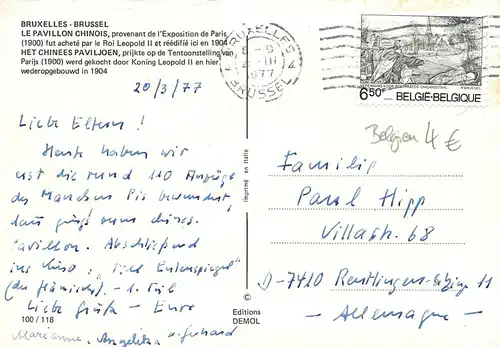 BRUXELLES - BRUSSEL
LE PAVILLON CHINOIS, provenant de l'Exposition de Paris
(1900) fut acheté par le Roi Leopold II et réédifié ici en 1904
HET CHINEES PAVILJOEN, prijkte op de Tentoonstelling van
Parijs (1900) werd gekocht door Koning Leopold II en hier
wederopgebouwd in 1904
20/3/77
Liebe Eltern!
Heute haben wir
erst die rund 110 Anzüge
des Manneken Pis bewundert,
dann ging's zum chines.
Pavillon. Abschließend
ins Kino: "Till Eulenspiegel"
(der flämische). - 1. Teil
Liebe Grüße - Eure
Marianne, Angelika u. Gerhard
100 / 118
imprimé en Italie
©
Editions
DEMOL
BRUXELLES
1977
BRUSSEL
6,50F
BELGIË-BELGIQUE
Belgien 4 €
Familie
Paul Hipp
Villastr. 68
D-7410 Reutlingen 11
- Allemagne -